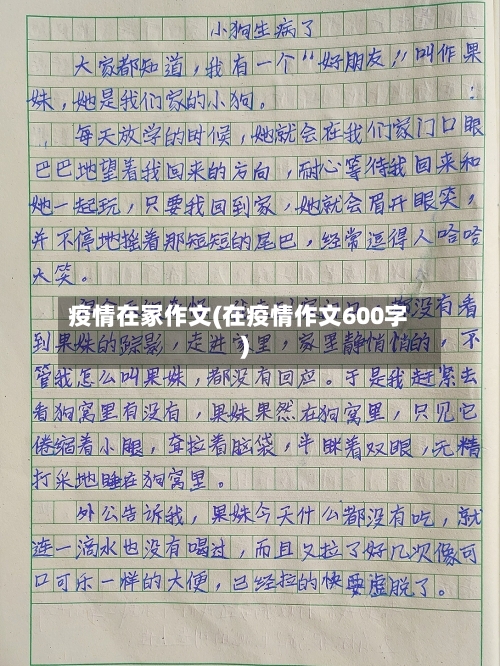 小狗生病了
大家都知道，我有一个“好朋友”叫作果
妹，她是我们家的小狗。
每天放学的时候，她就会在我们家门口眼
巴巴地望着我回来的方向，耐心等待我回来和
她一起玩，只要我回到家，她就会眉开眼笑，
并不停地摇着那短短的尾巴，经常逗得人哈哈
大笑。
都没有看
疫情在家作文(在疫情作文600字
)
到果妹的踪影，走进家里，家里静悄悄的，不
管我怎么叫果妹，都没有回应。于是我赶紧去
看狗窝里有没有，果妹果然在狗窝里，只见它
倦缩着小腿，耷拉着脑袋，半眯着双眼，无精
打采地睡在狗窝里。
外公告诉我，果妹今天什么都没有吃，就
连一滴水也没有喝过，而且又拉了好几次像可
口可乐一样的大便，已经拉的快要虚脱了。